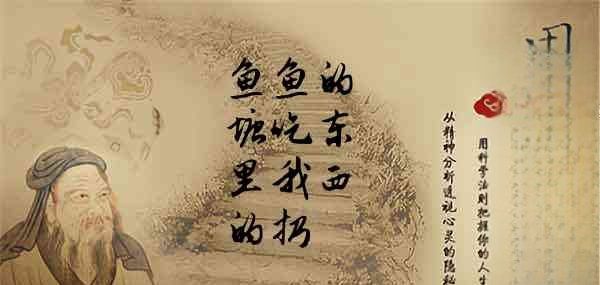 鱼塘里的
鱼吃我扔
的东西
用科学法则把握你的人生
从精神分析透视心灵的隐秘